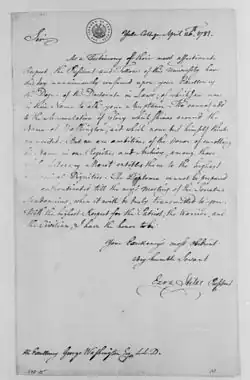 Yale College April 26th 1781.
Sir,
As a Testimony of their most affectionate
Respect, the President and Fellows of this University have
this day unanimously conferred upon your Excellency
the Degree of the Doctorate in Laws; of which I am
in their Name to ask your Acceptance. We cannot add
to the Accumulation of Glory which shines around the
Name of Washington, and which none but himself thinks
But we are ambitious of the honor of enrolling
Name in our Registers and Archives, among those
literary Merit entitles them to the highest
Dignities. The Diploma cannot be prepared
authenticated till the next Meeting of the Senatus
Academicus, when it will be duly transmitted to you.
With the highest Respect for the Patriot, the Warrior, and
the Civilian, I have the honor to be
Your Excellency's most obedient
very humble Servant
Ezra Stiles President
His Excellency George Washington Esq. LL.D.